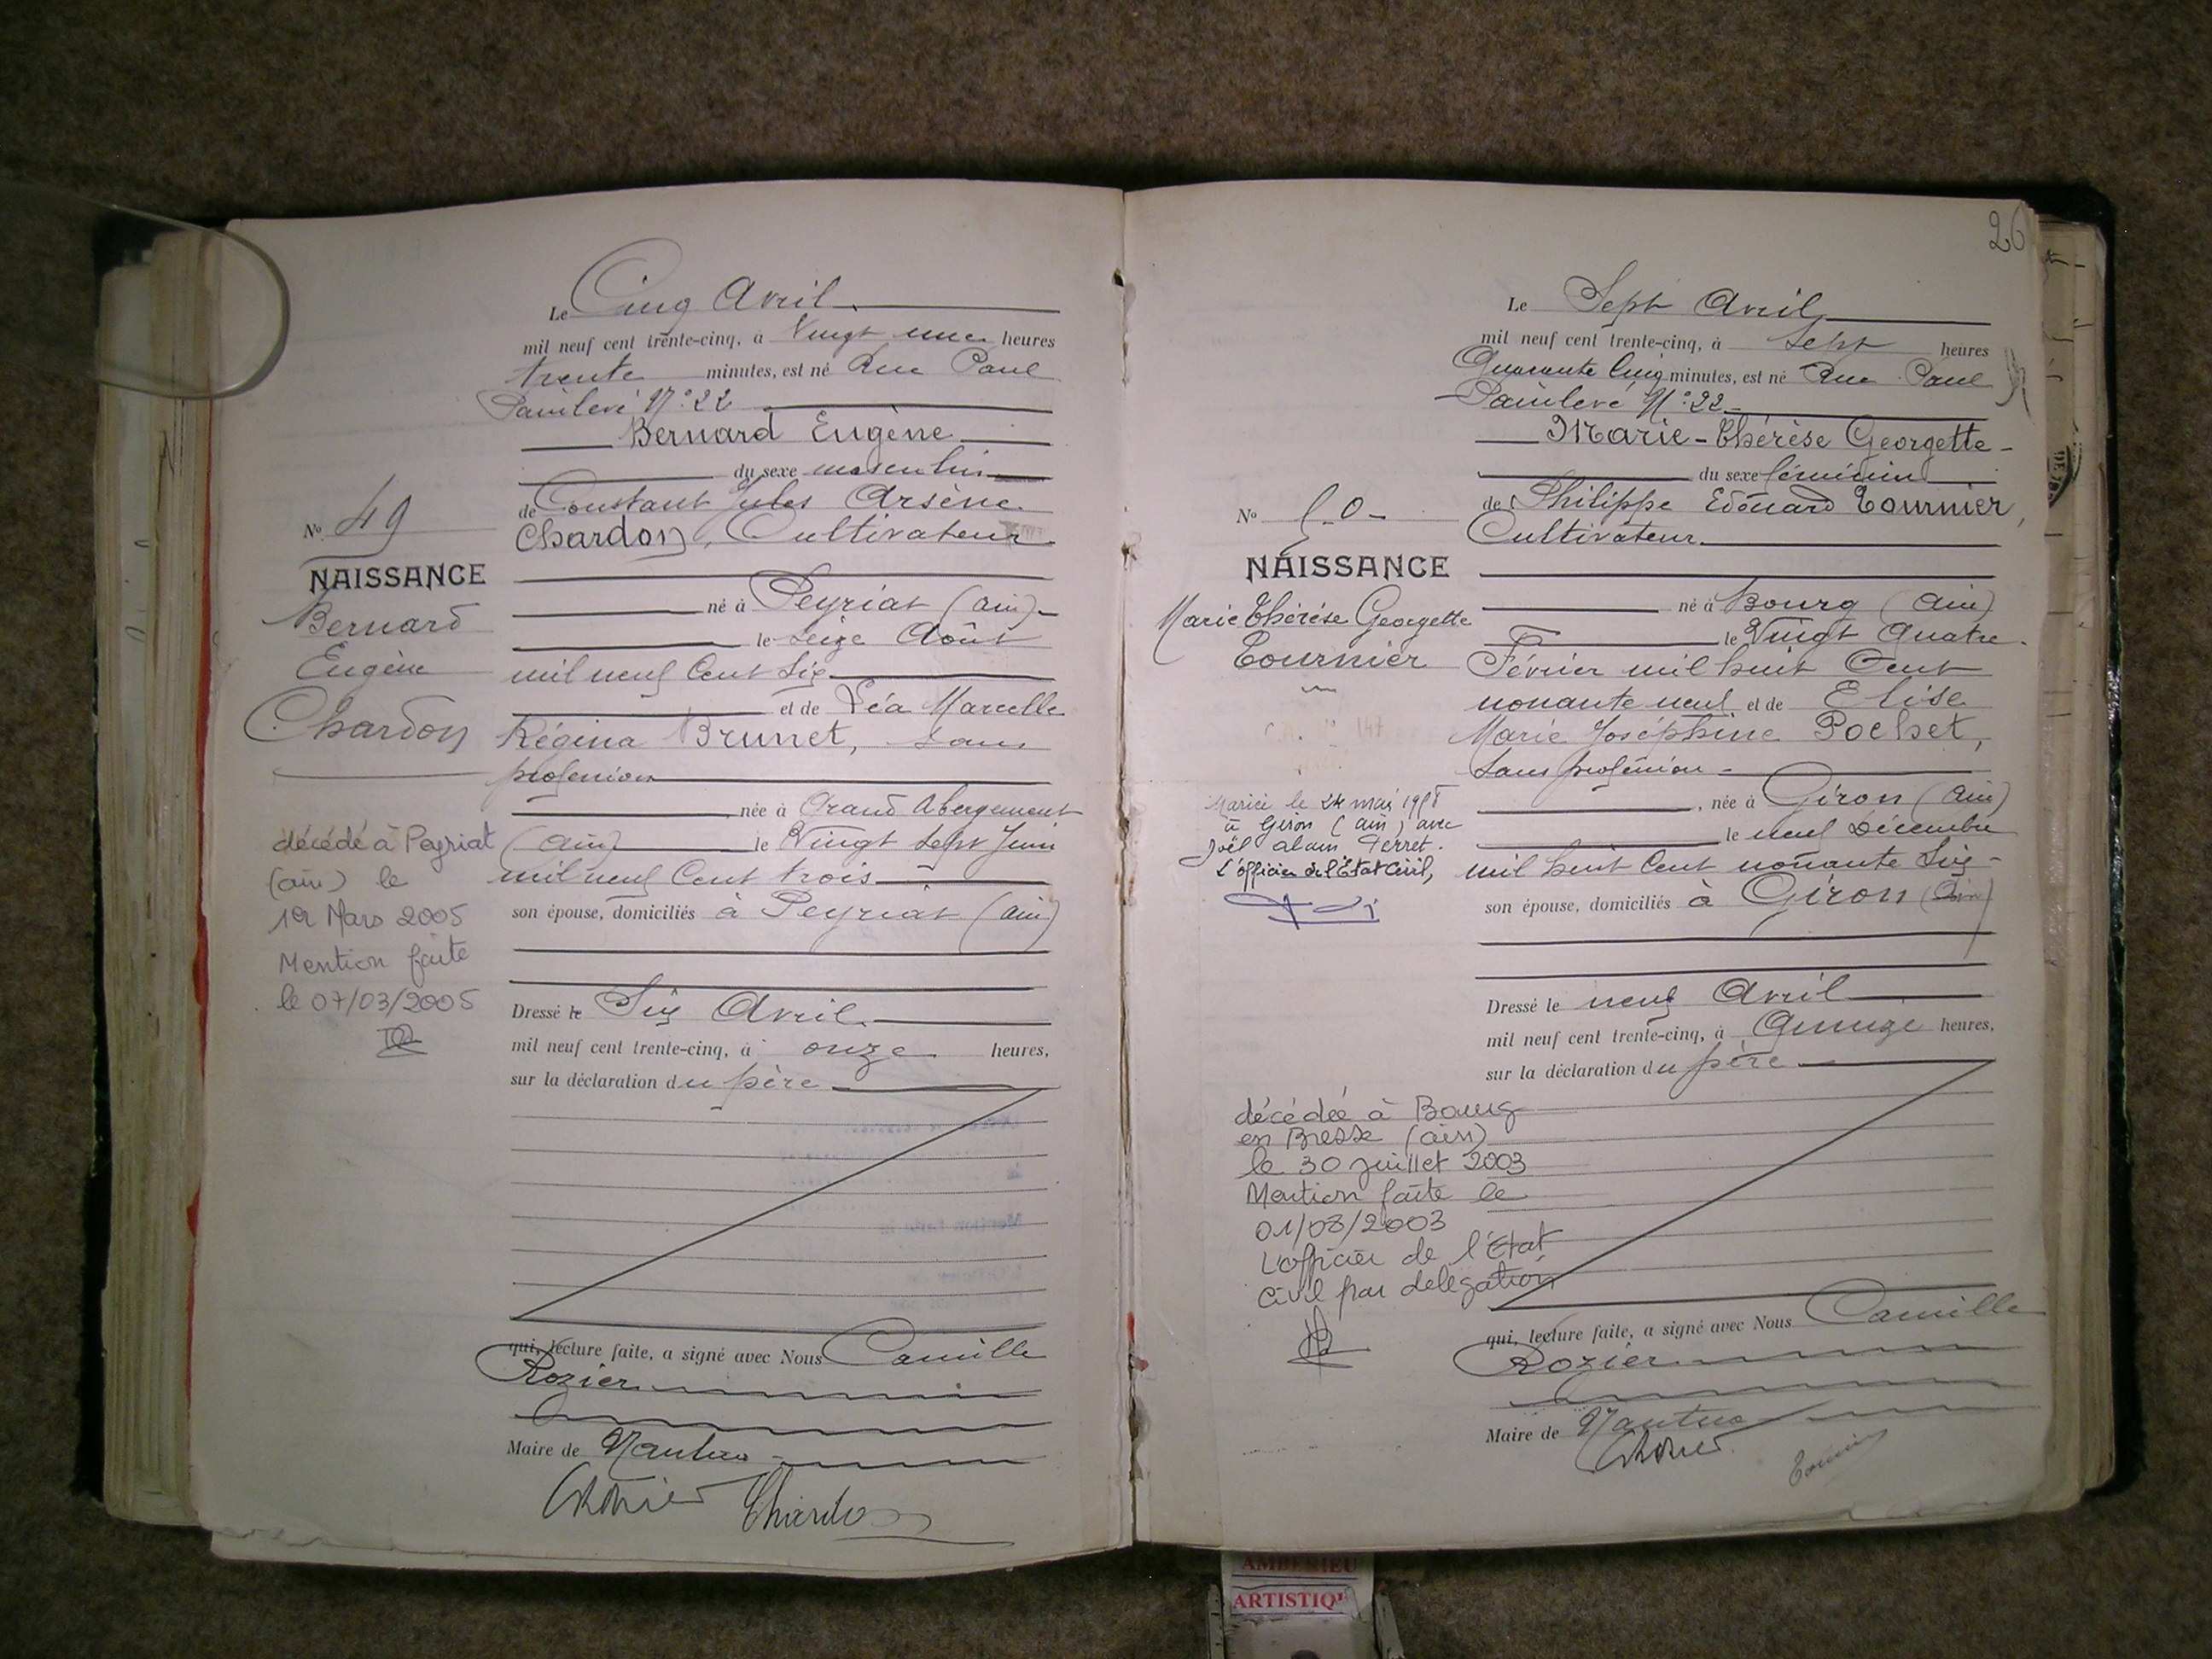 Le Cinq Avril
mil neuf cent trente-cinq, à Vingt une heures
trente minutes, est né Rue Paul
Painlevé N° 22
Bernard Eugène
du sexe masculin
de Constant Jules Arsène
Chardon, Cultivateur
né à Peyriat (Ain)
le seize Août
mil neuf Cent Six
et de Léa Marcelle
Régina Brunet, sans
profession
née à Grand Abergement
(Ain) le Vingt sept Juin
mil neuf Cent trois
son épouse, domiciliés à Peyriat (Ain)
Dressé le Six Avril
mil neuf cent trente-cinq, à onze heures,
sur la déclaration du père
qui, lecture faite, a signé avec Nous Camille
Rozier
Maire de Nantua
Chardon
No 49
NAISSANCE
Bernard
Eugène
Chardon
décédé à Peyriat
(ain) le
1er Mars 2005
Mention faite
le 07/03/2005
26
Le Sept Avril
mil neuf cent trente-cinq, à Sept heures
Quarante Cinq minutes, est né Rue Paul
Painlevé N° 22
Marie-Thérèse Georgette
du sexe féminin
de Philippe Edouard Tournier,
Cultivateur
né à Bourg (Ain)
le Vingt Quatre
Février mil huit Cent
nonante neuf et de Elise
Marie Joséphine Pochet,
Sans profession
, née à Giron (Ain)
le neuf Décembre
mil huit Cent nonante Six
son épouse, domiciliés à Giron (Ain)
Dressé le neuf Avril
mil neuf cent trente-cinq, à Quinze heures,
sur la déclaration du père
qui, lecture faite, a signé avec Nous Camille
Rozier
Maire de Nantua
No 50
NAISSANCE
Marie Thérèse Georgette
Tournier
Mariée le 24 mai
à Giron (Ain) avec
Joël Alain Perret.
L'officier de l'Etat Civil,
décédée à Bourg
en Bresse (ain)
le 30 juillet 2003
Mention faite le
01/08/2003
L'officier de l'Etat
Civil par delegation
AMBERIEU
ARTISTIQU